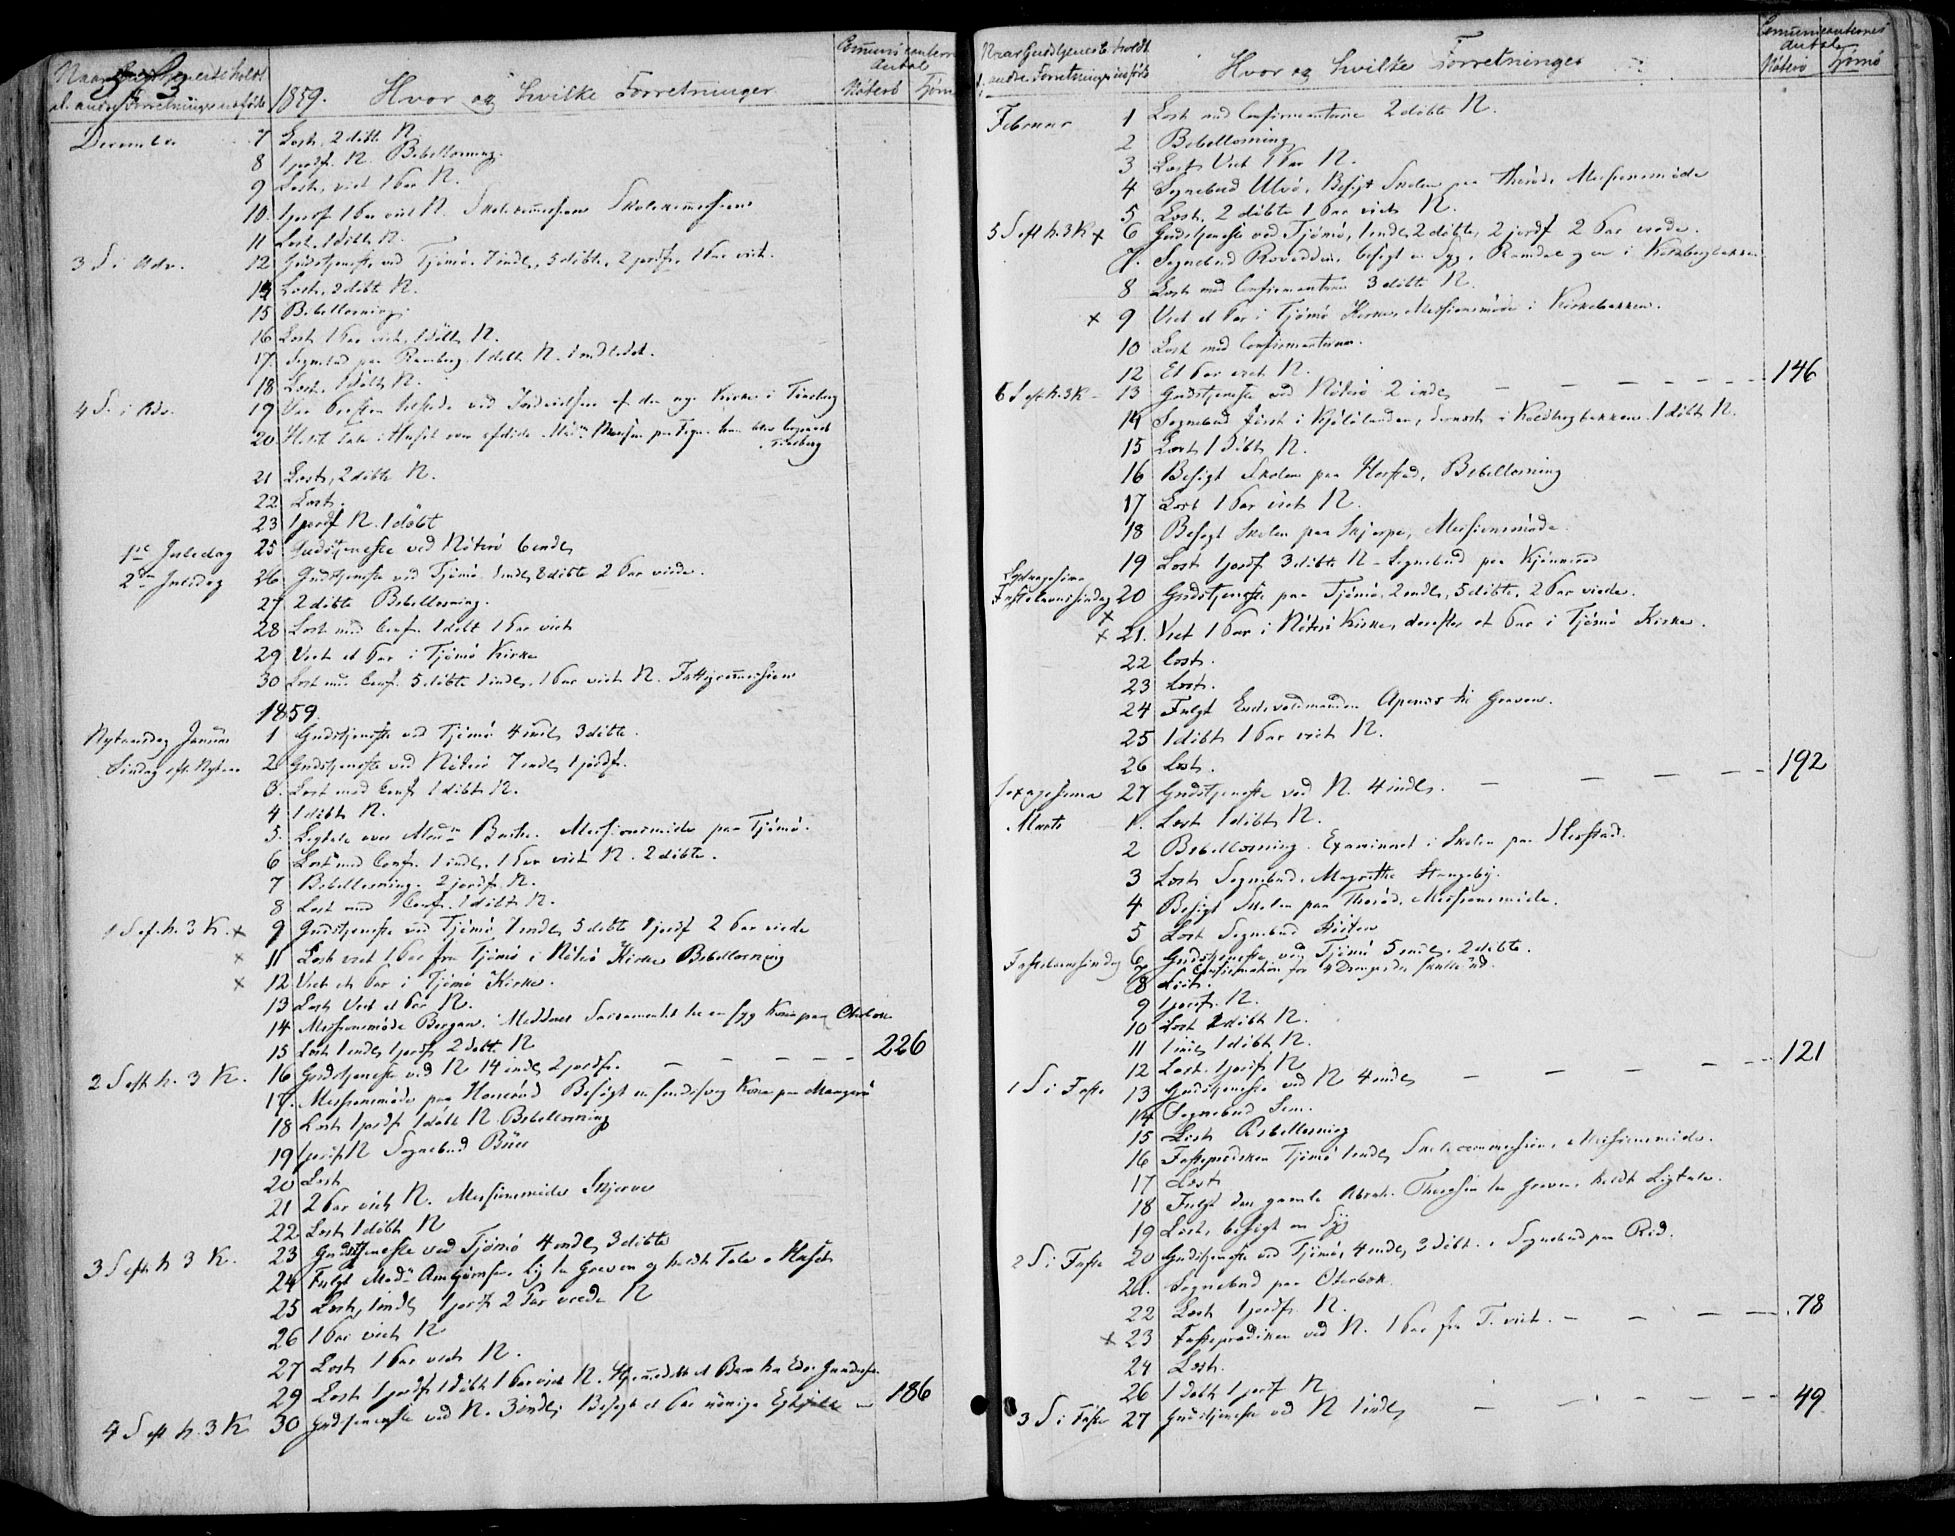 Naar Gudstjeneste holdt
el. andre Forretninger udførte
1859. Hvor og hvilke Forretninger
Communicanternes Antal
Nøterø Tjømø
December 7 Læst, 2 døbte N.
8 1 jordf. N. Bibellæsning.
9 Læst, viet 1 Par N.
10. 1 jordf 1 Par viet N. Skolecommission
11 Læst. 1 døbt N.
3 S i Adv. 12 Gudstjeneste ved Tjømø. 7 indl, 5 døbte, 2 jordf. 1 Par viet.
14 Læst. 2 døbte N.
15 Bibellæsning.
16 Læst 1 Par viet, 1 døbt N.
17 Sognebud paa Ramberg. 1 døbt N. 1 indledet.
18 Læst. 1 døbt N.
4 S. i Adv. 19 Var tilstede ved Indvielsen af den nye Kirke i Tønsberg
20 Holdt Tale i Huset over afdøde
Tønsberg
21 Læst, 2 døbte N.
22 Læst.
23 1 jordf N. 1 døbt
1ste Juledag 25 Gudstjeneste ved Nøterø 6 indl,
2den Juledag 26 Gudstjeneste ved Tjømø. 1 indl, 8 døbte 2 Par viede.
27 2 døbte Bibellæsning.
28 Læst med Conf. 1 døbt 1 Par viet
29 Viet et Par i Tjømø Kirke
30 Læst med Conf. 5 døbte 1 indl. 1 Par viet N. Fattigcommission
1859.
Nytaarsdag Januar 1 Gudstjeneste ved Tjømø 4 indl, 3 døbte.
Søndag eft. Nytaar 2 Gudstjeneste ved Nøterø 7 indl, 1 jordf.
3. Læst med Conf 1 døbt N.
4 1 døbt N.
5. Ligtale over Madm Missionsmøde paa Tjømø.
6 Læst med Conf. 1 indl. 1 Par viet N. 2 døbte.
7 Bibellæsning. 2 jordf. N.
8 Læst med Conf. 1 døbt N.
1 S ef. h. 3 K. x 9 Gudstjeneste ved Tjømø 7 indl, 5 døbte 1 jordf 2 Par viede
x 11 Læst viet 1 Par fra Tjømø i Nøterø Kirke Bibellæsning
x 12 Viet et Par i Tjømø Kirke.
13 Læst Viet et Par N.
14 Missionsmøde Bergan. Meddelt Sacramentet til en syg Kone paa
15 Læst 1 indl, 1 jordf 2 døbte N
2 S eft h. 3 K. 16 Gudstjeneste ved N 14 indl, 2 jordf. — — — — — 226
17. Missionsmøde paa Besøgt en sindssvag Kone paa
18 Læst 1 jordf 1 døbt N Bibellæsning
19 1 jordf N Sognebud
20 Læst
21 2 Par viet N. Missionsmøde Skjerve
22 Læst 1 døbt N
3 S eft h 3 K. 23 Gudstjeneste ved Tjømø 4 indl, 3 døbte
24 Fulgt Madm Lig til Graven og holdt Tale i Huset
25 Læst, 1 indl, 1 jordf 2 Par viede N
26 1 Par viet N
27 Læst 1 Par viet N.
29 Læst 1 jordf 1 døbt 1 Par viet N.
4 S eft h. 3 K 30 Gudstjeneste ved N. 3 indl, Besøgt et Par — 186
Naar Gudstjeneste holdt
el. andre Forretninger udførte
Hvor og hvilke Forretninger
Communicanternes Antal
Nøterø Tjømø
Februar 1 Læst med Confirmanterne 2 døbte N.
2 Bibellæsning
3 Læst Viet 1 Par N.
4 Sognebud Ulvø. Besøgt Skolen paa Missionsmøde
5 Læst. 2 døbte 1 Par viet N.
5 S eft h. 3 K x 6 Gudstjeneste ved Tjømø, 1 indl, 2 døbte, 2 jordf 2 Par viede.
7. Sognebud besøgt en Syg, Ramdal og en i
8 Læst med Confirmanterne 3 døbte N.
x 9 Viet et Par i Tjømø Kirke, Missionsmøde i Kirkebakken.
10 Læst med Confirmanterne.
12 Et Par viet N.
6 S eft h. 3 K - 13 Gudstjeneste ved Nøterø 2 indl, — — — — — 146
14 Sognebud først i dernæst i 1 døbt N.
15 Læst 1 døbt N.
16 Besøgt Skolen paa Herstad, Bibellæsning
17 Læst 1 Par viet N.
18 Besøgt Skolen paa Skjerve, Missionsmøde.
19 Læst 1 jordf 3 døbte N - Sognebud paa
Septuagesima
Fastelavnssøndag 20 Gudstjeneste paa Tjømø, 2 indl., 5 døbte, 2 Par viede.
x
x 21. Viet 1 Par i Nøterø Kirke, derefter et Par i Tjømø Kirke.
22 Læst.
23 Læst.
24 Fulgt til Graven.
25 1 døbt 1 Par viet N.
26 Læst.
Sexagesima 27 Gudstjeneste ved N. 4 indl. — — — — 192
Marts 1. Læst 1 døbt N.
2 Bibellæsning. Examineret i Skolen paa Herstad.
3 Læst Sognebud.
4 Besøgt Skolen paa Missionsmøde.
5 Læst Sognebud
Fastelavnssøndag 6 Gudstjeneste ved Tjømø 5 indl. 2 døbte.
7 Confirmation for 4 Drenge der skulle ud.
8 Læst.
9 1 jordf. N.
10 Læst 2 døbt N.
11 1 indl 1 døbt N.
12 Læst. 1 jordf N
1 S i Faste 13 Gudstjeneste ved N 4 indl, — — — — — 121
14 Sognebud Sem.
15 Læst Bibellæsning
16 Fasteprædiken Tjømø 1 indl, Skolecommission, Missionsmøde.
17 Læst
18 Fulgt den gamle Abrah. til Graven, holdt Ligtale.
19 Læst, besøgt en Syg
2 S i Faste 20 Gudstjeneste ved Tjømø, 4 indl, 3 døbt. Sognebud paa
21. Sognebud paa
22 Læst 1 jordf. N.
x 23 Fasteprædiken ved N. 1 Par fra T. viet. — — — — 78
24 Læst.
26 1 døbt 1 jordf N
3 S i Faste 27 Gudstjeneste ved N 1 indl, — — — — 49